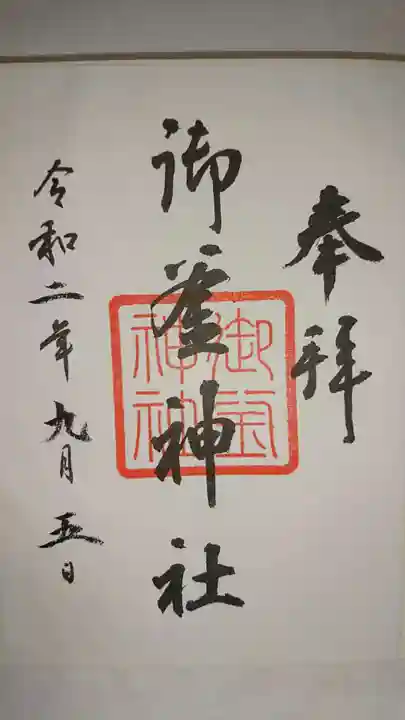 奉拝
御釜神社
令和二年九月五日
御釜神社